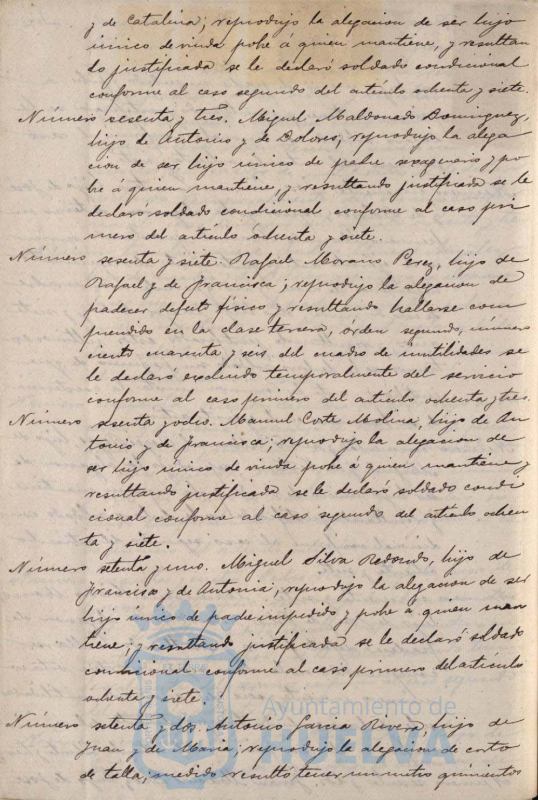 y de Catalina; reprodujo la alegacion de ser hijo
único de viuda pobre á quien mantiene, y resultan
do justificada se le declaró soldado condicional
conforme al caso segundo del artículo ochenta y siete.
Número sesenta y tres. Miguel Maldonado Dominguez,
hijo de Antonio y de Dolores, reprodujo la alega
cion de ser hijo único de padre sexagenario y po
bre á quien mantiene, y resultando justificada se le
declaró soldado condicional conforme al caso pri
mero del artículo ochenta y siete.
Número sesenta y siete. Rafael Morano Perez, hijo de
Rafael y de Francisca; reprodujo la alegacion de
padecer defecto físico y resultando hallarse com
prendido en la clase tercera, orden segundo, número
ciento cuarenta y seis del cuadro de inutilidades se
le declaró excluido temporalmente del servicio
conforme al caso primero del artículo ochenta y tres.
Número sesenta y ocho. Manuel Corte Molina, hijo de An
tonio y de Francisca; reprodujo la alegacion de
ser hijo único de viuda pobre á quien mantiene y
resultando justificada se le declaró soldado condi
cional conforme al caso segundo del artículo ochen
ta y siete.
Número setenta y uno. Miguel Silva Redondo, hijo de
Francisco y de Antonia, reprodujo la alegacion de ser
hijo único de padre impedido y pobre á quien man
tiene; y resultando justificada se le declaró soldado
condicional conforme al caso primero del artículo
ochenta y siete.
Número setenta y dos. Antonio Garcia Rivera, hijo de
Juan y de Maria; reprodujo la alegacion de corto
de talla; medido resultó tener un metro quinientos
Ayuntamiento de
HUELVA